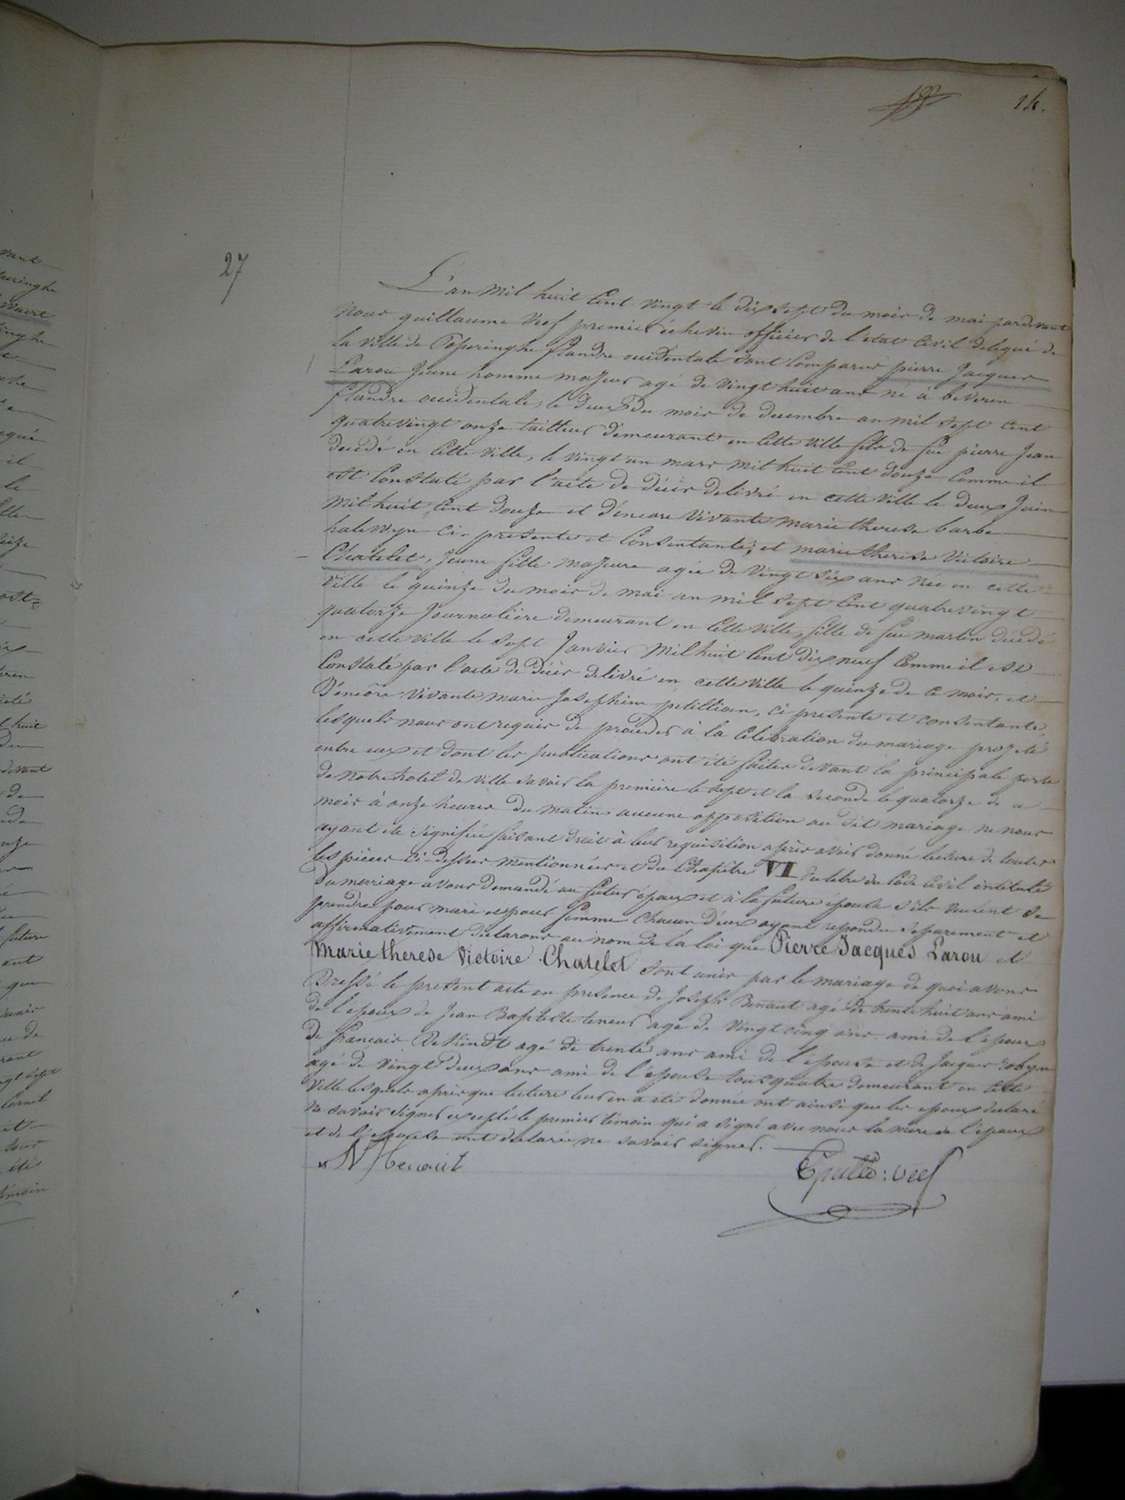 14.
27
L'an mil huit cent vingt le dix sept du mois de mai pardevant
nous guillaume Veef premier échevin officier de l'etat Civil delegué de
la ville de Poperinghe flandre occidentale sont Comparus pierre Jacques
Larou Jeune homme majeur agé de vingt huit ans né à beveren
flandre occidentale, le deux du mois de decembre an mil sept cent
quatrevingt onze tailleur demeurant en cette ville fils de feu pierre Jean
decédé en cette ville, le vingt un mars mil huit cent douze comme il
est Constaté par l'acte de décès delivré en cette ville le deux Juin
mil huit cent douze et d'encore vivante marie therese barbe
halewyn ci-presente et Consentante; et marie therese Victoire
Chatelet, Jeune fille majeure agée de vingt six ans née en cette
ville le quinze du mois de mai an mil sept cent quatrevingt
quatorze Journalière demeurant en cette ville, fille de feu martin decédé
en cette ville le sept Janvier mil huit cent dix neuf comme il est
Constaté par l'acte de décès delivré en cette ville le quinze de ce mois, et
d'encore vivante marie Josephine petillion, ci presente et consentante,
lesquels nous ont requis de procéder à la Celebration du mariage projeté
entre eux et dont les publications ont été faites devant la principale porte
de notre hotel de ville savoir la première le sept et la seconde le quatorze de ce
mois à onze heures du matin aucune opposition au dit mariage ne nous
ayant été signifiée faisant droit à leur requisition après avoir donné lecture de toutes
les pièces ci-dessus mentionnées et du Chapitre VI du titre du Code Civil intitulé
du mariage avons demandé au futur epoux et à la future epouse s'ils veulent se
prendre pour mari et pour femme Chacun d'eux ayant repondu separement et
affirmativement declarons au nom de la loi que Pierre Jacques Larou et
Marie therese Victoire Chatelet sont unis par le mariage de quoi avons
Dressé le present acte en presence de Joseph agé de trente huit ans ami
de l'epoux de Jean Baptiste agé de vingt cinq ans ami de l'epoux
de francois De Kindt agé de trente ans ami de l'epouse et de Jacques robyn
agé de vingt deux ans ami de l'epouse tous quatre demeurant en cette
ville lesquels après que lecture leur en a été donnée ont ainsi que les epoux declaré
ne savoir signer excepté le premier témoin qui a signé avec nous la mère de l'epoux
et de l'epouse ont declaré ne savoir signer.